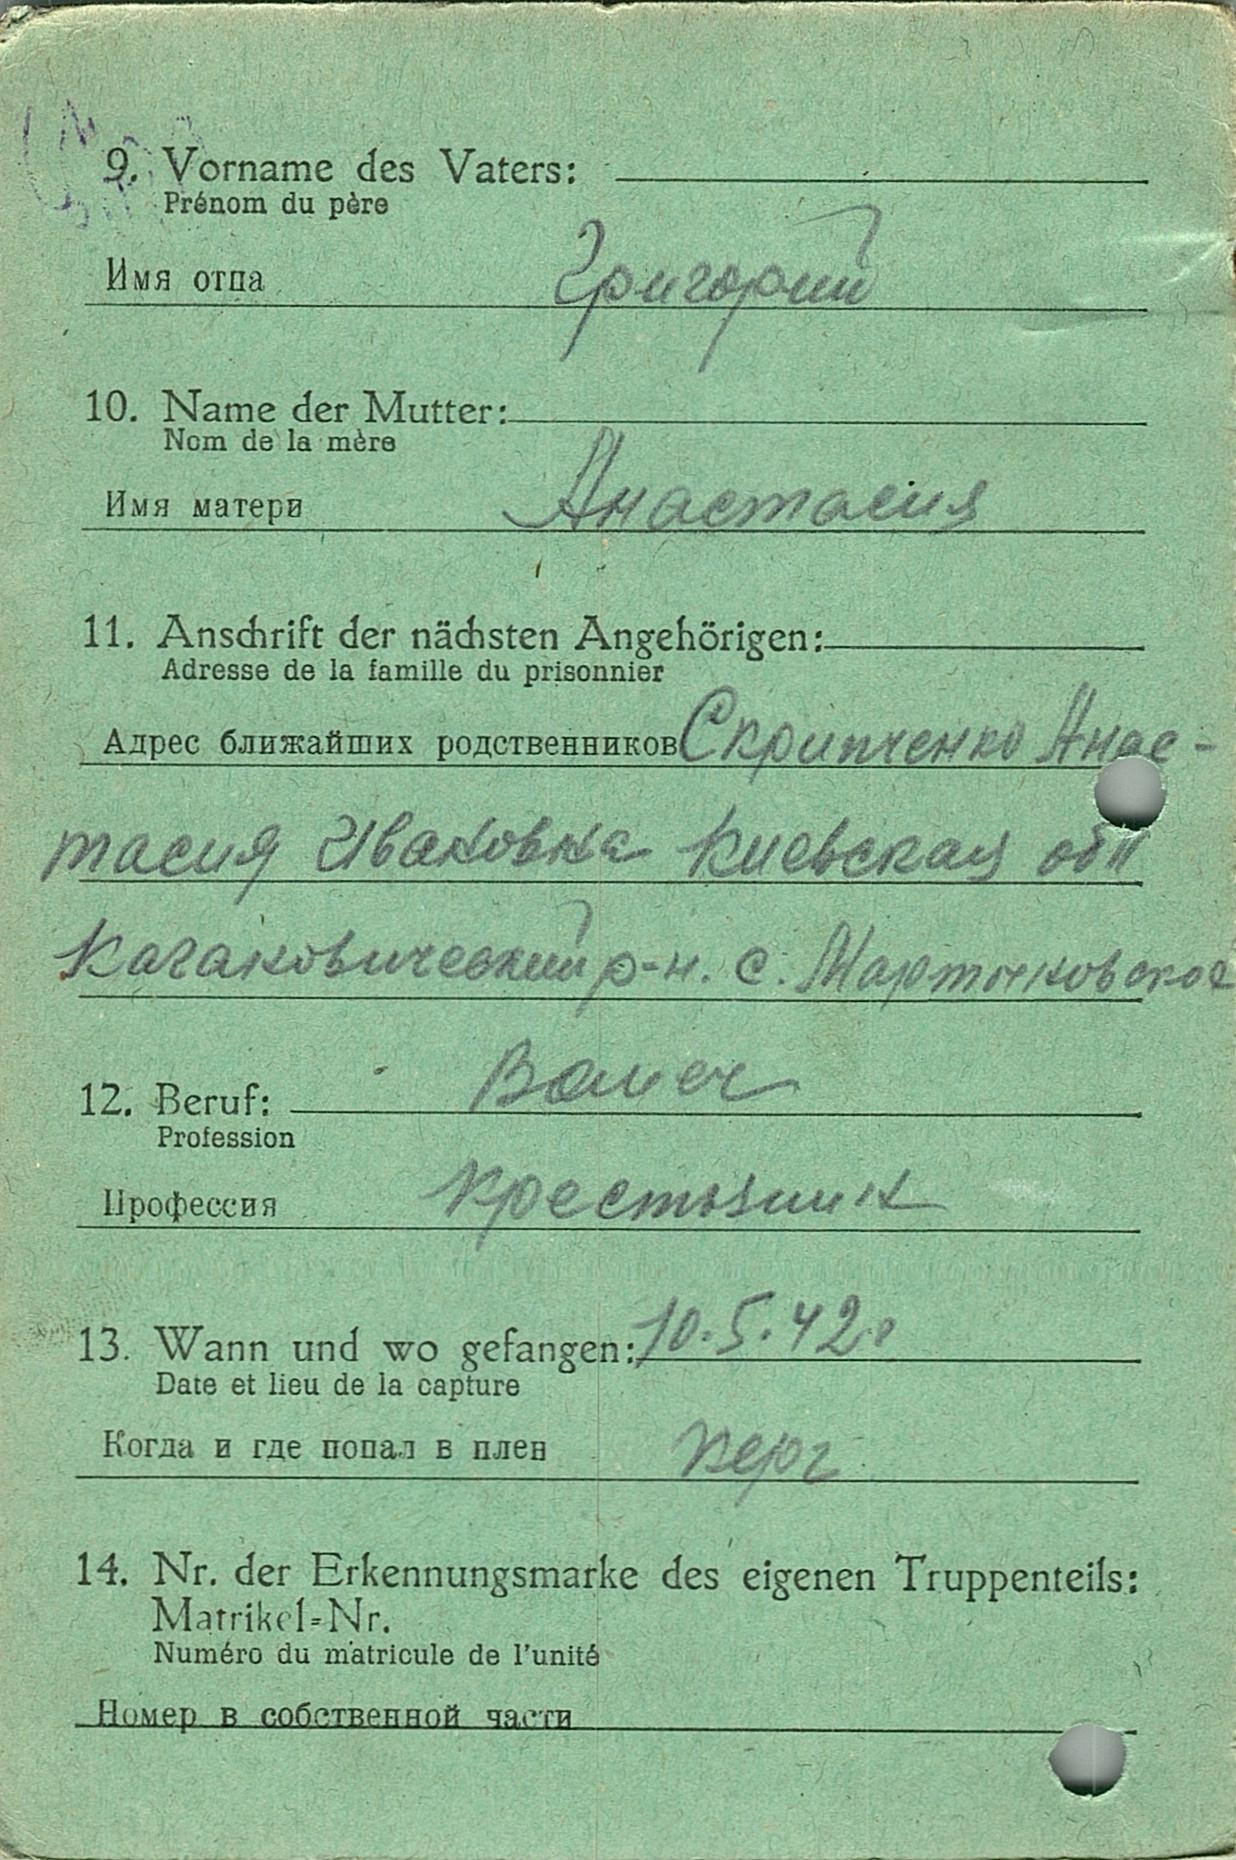 9. Vorname des Vaters:
Prénom du père
Имя отца Григорий
10. Name der Mutter:
Nom de la mère
Имя матери Анастасия
11. Anschrift der nächsten Angehörigen:
Adresse de la famille du prisonnier
Адрес ближайших родственников Скрипченко Анас-
тасия Ивановна Киевская обл
Кагановический р-н. с. Мартыновское
12. Beruf: Bauer
Profession
Профессия Крестьянин
13. Wann und wo gefangen: 10.5.42.
Date et lieu de la capture
Когда и где попал в плен Керч
14. Nr. der Erkennungsmarke des eigenen Truppenteils:
Matrikel=Nr.
Numéro du matricule de l'unité
Номер в собственной части